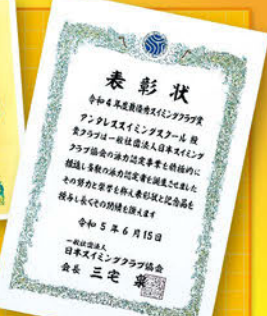 表彰状
令和4年度最優秀スイミングクラブ賞
アンタレススイミングスクール 殿
貴クラブは一般社団法人日本スイミング
クラブ協会の泳力認定事業を積極的に
推進し多数の泳力認定者を誕生させました
その努力と栄誉を称え表彰状と記念品を
授与し長くその功績を讃えます
令和5年6月15日
一般社団法人
日本スイミングクラブ協会
会長 三宅 泉